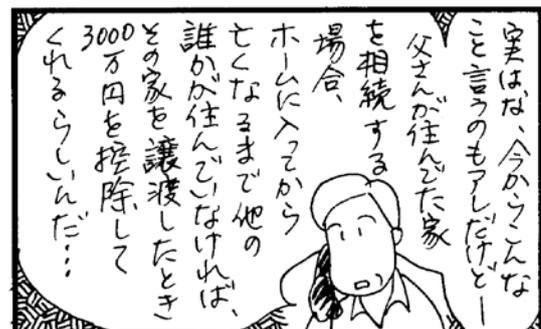 実はな、今からこんな
こと言うのもアレだけどー
父さんが住んでた家
を相続する
場合、
ホームに入ってから
亡くなるまで他の
誰かが住んでいなければ、
その家を譲渡したとき
3000万円を控除して
くれるらしいんだ…